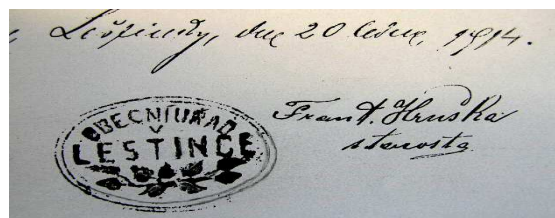 Leštinky, dne 20 ledna, 1914.
Frant. Hruška
starosta
OBECNÍ ÚŘAD
V
LEŠTINCE